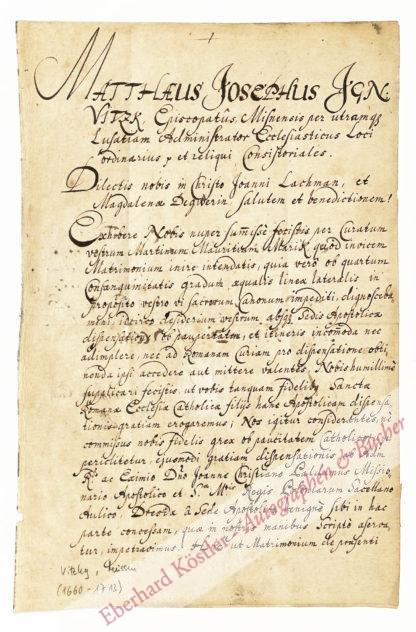 MATTHÆUS JOSEPHUS IGN.
VITZK Episcopatus Misnensis per utramq3
Lusatiam Administrator Ecclesiasticus Loci
ordinarius, et reliqui Consistoriales.
Dilectis nobis in Christo Joanni Lachman, et
Magdalenæ salutem et benedictionem!
Exhibere Nobis nuper fecistis per Curatum
vestrum Martinum Mauritium quod invicem
Matrimonium inire intendatis, quia verò ob quartum
Consanguinitatis gradum æqualis lineæ lateralis in
proposito vestro vi sacrorum Canonum impediti, dignosceba-
mini, idcirco desiderium vestrum absq3 Sedis Apostolicæ
dispensatione ob paupertatem, et itineris incomoda nec
adimplere, nec ad Romanam Curiam pro dispensatione obti-
nenda ipsi accedere aut mittere valentes, Nobis humillimè
supplicari fecistis, ut vobis tanquam fidelib9 Sanctæ
Romanæ Ecclesiæ Catholicæ filijs hanc Apostolicam dispensa-
tionis gratiam erogaremus; Nos igitur considerantes, ne
commissus nobis fidelis grex ob paucitatem Catholicorum
periclitetur, ejusmodi gratiam dispensationis
ac Eximio Dno Joanne Christiano Missio-
nario Apostolico et Regis Sacellano
Aulico, Dresdæ à Sede Apostolica benignè sibi in hac
parte concessam, quæ in nostris manibus Scripto aserva-
tur, impetravimus ut Matrimonium
(1660-1713)
Eberhard Köstler - Autographen & Bücher